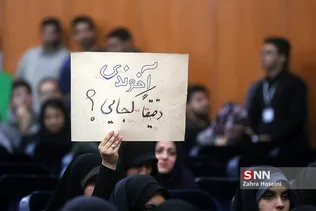 آخوندی
دقیقا کجایی؟
SNN
Photo: Zahra Hoseini